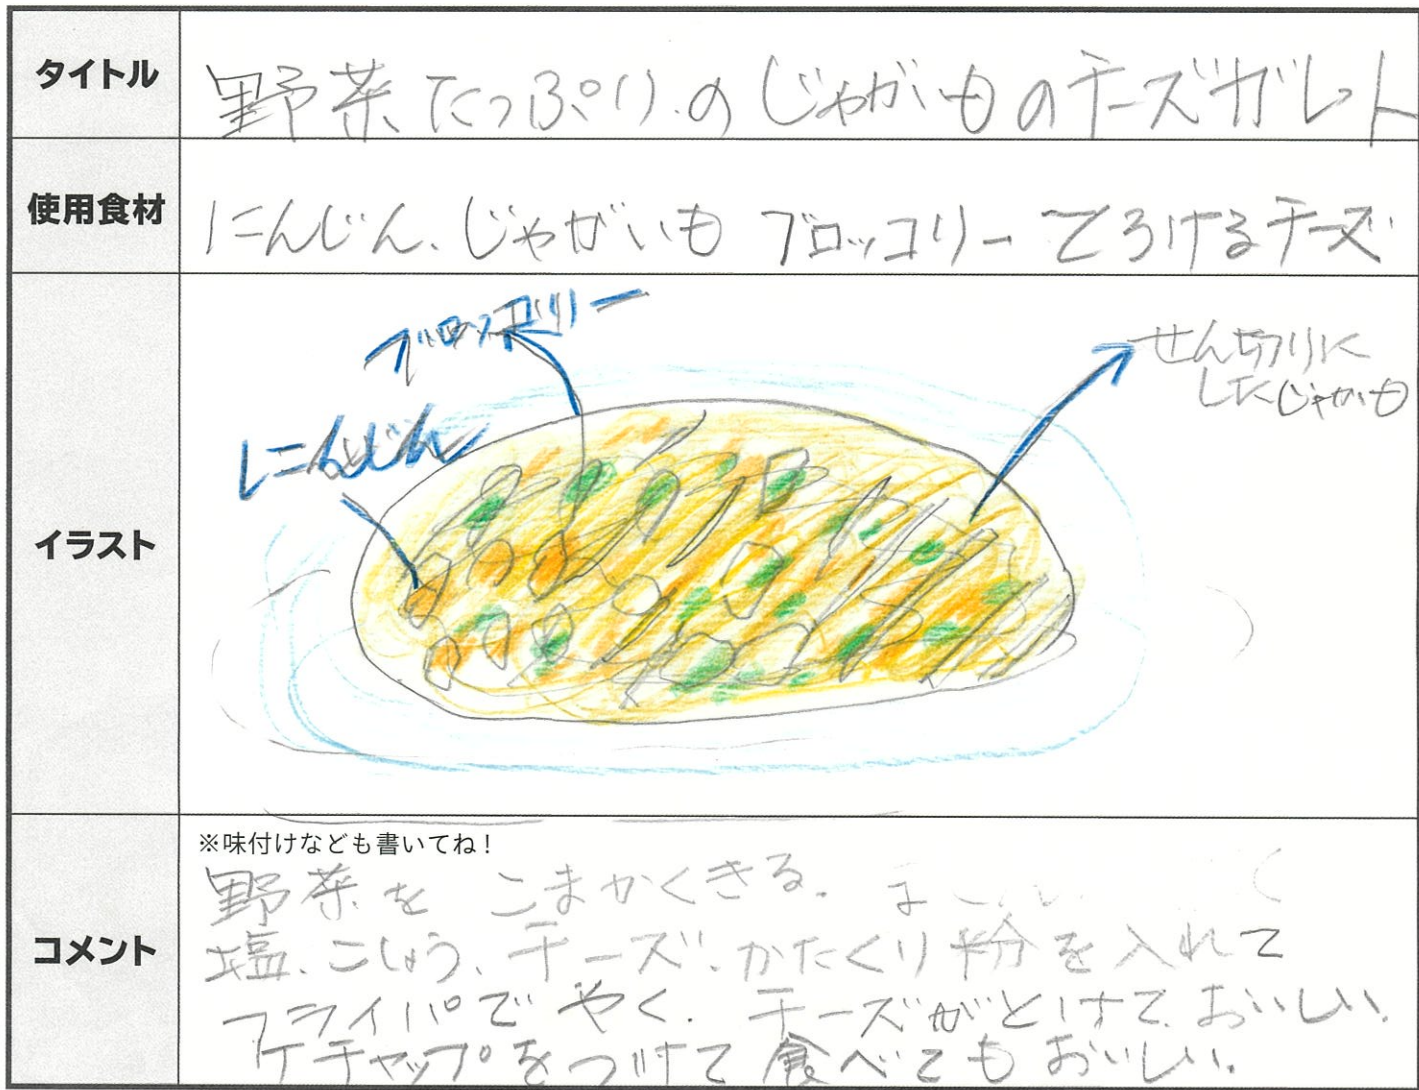 タイトル
野菜たっぷりのじゃがいものチーズガレット
使用食材
にんじん、じゃがいも ブロッコリー とろけるチーズ
イラスト
ブロッコリー
にんじん
せん切りに
したじゃがいも
コメント
※味付けなども書いてね！
野菜を こまかくきる。
塩、こしょう、チーズ、かたくり粉を入れて
フライパでやく。チーズがとけておいしい。
ケチャップをつけて食べてもおいしい。